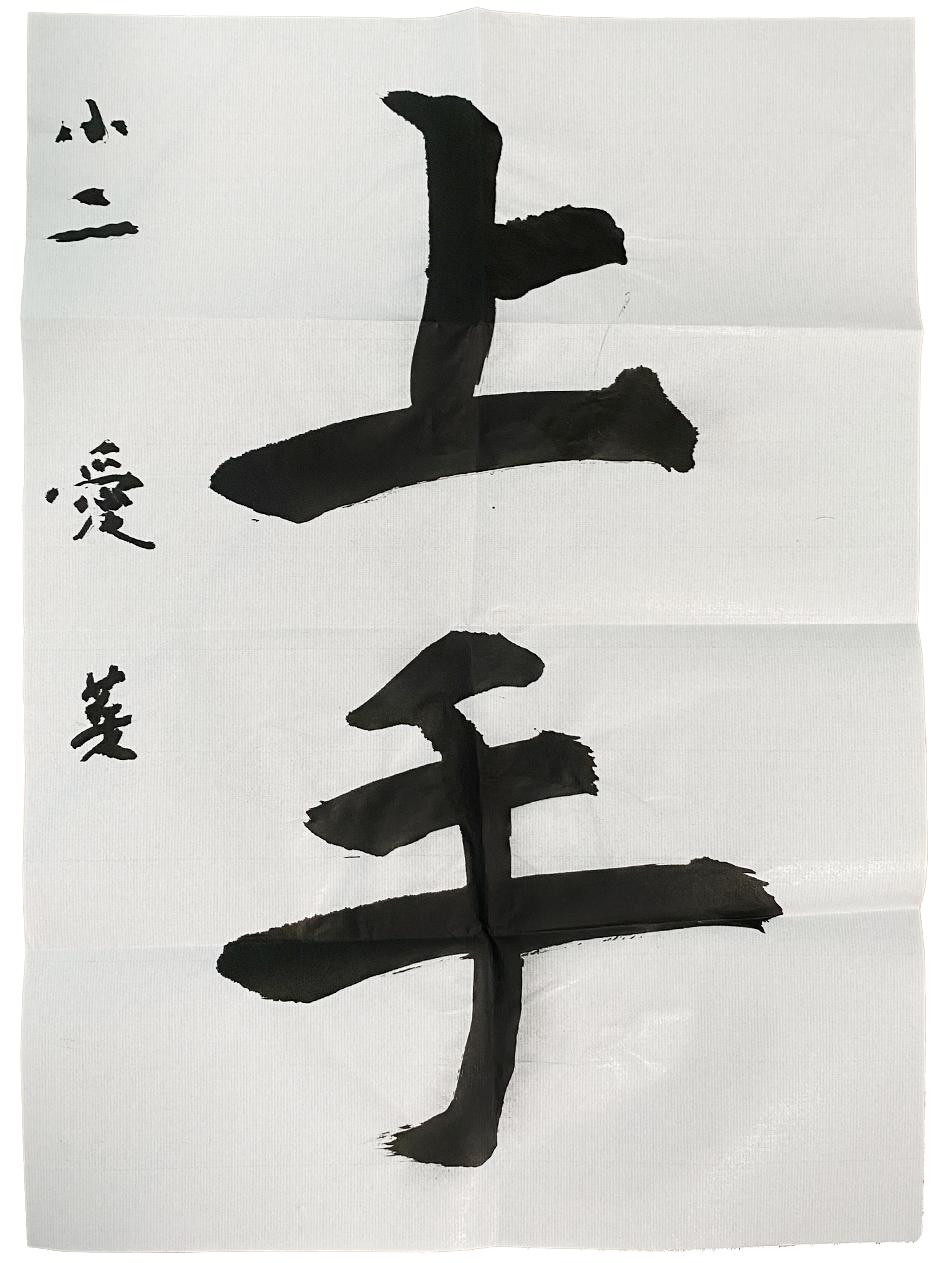 上手
小二 愛菱